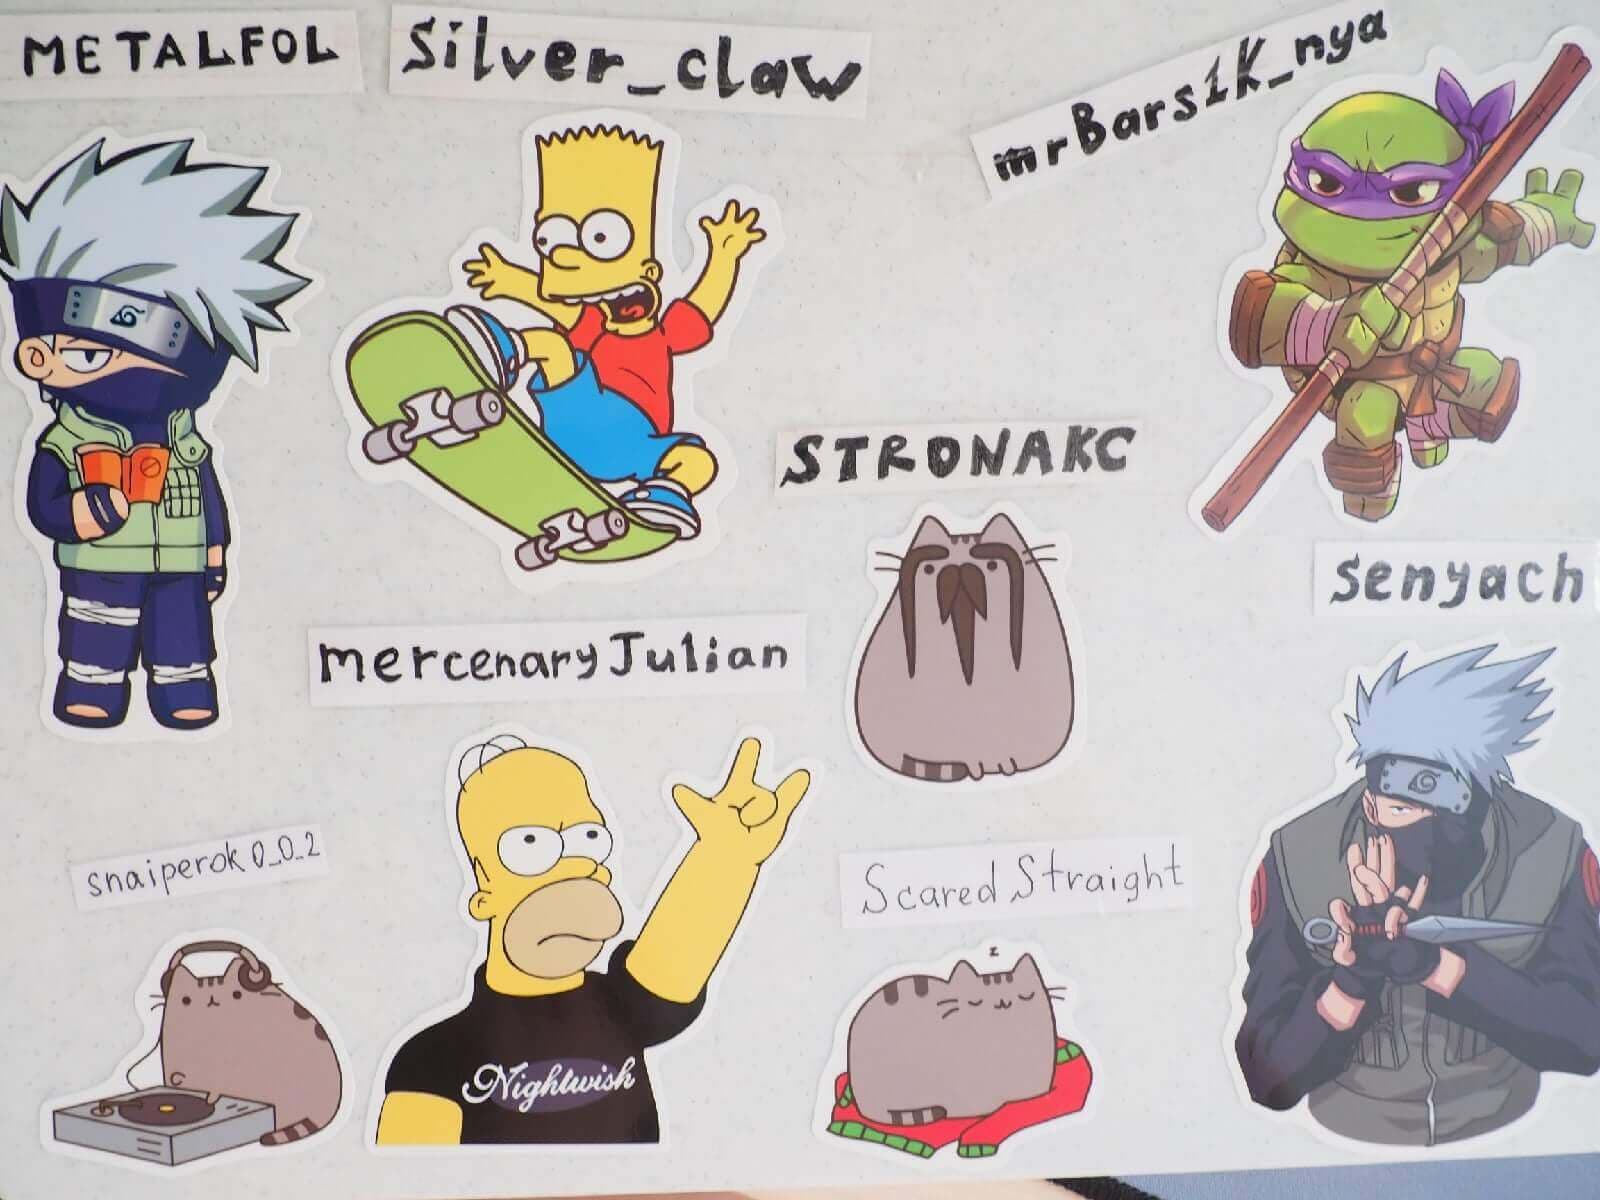 METALFOL
Silver_claw
mrBars1K_nya
STRONAKC
senyach
mercenaryJulian
snaiperok0_0_2
Scared Straight
z
Nightwish